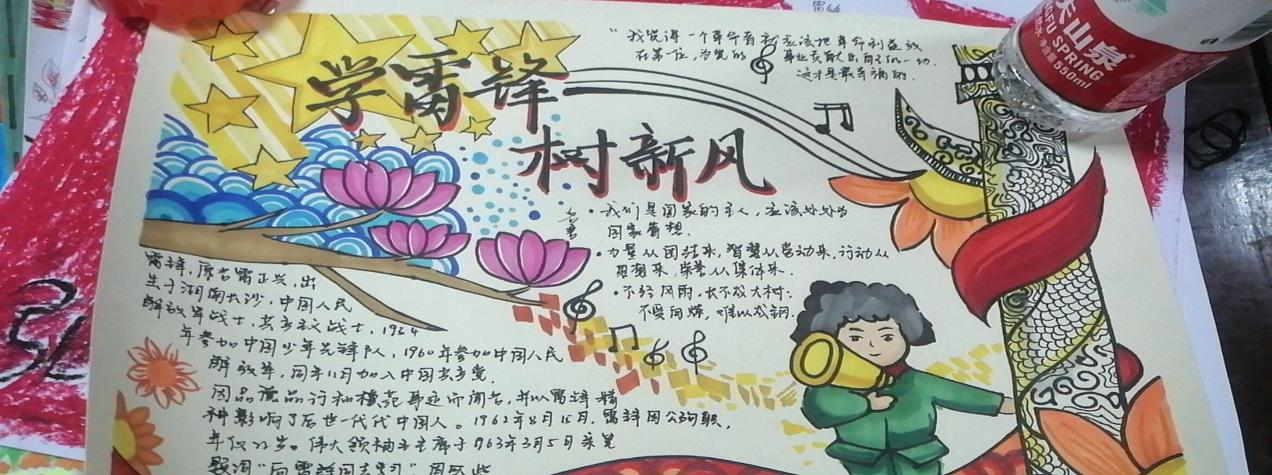 学雷锋
树新风
"我觉得一个革命者就应该把革命利益放
在第一位,为党的事业贡献出自己的一切,
这才是最幸福的.
名言
·我们是国家的主人,应该处处为
国家着想.
·力量从团结来,智慧从劳动来,行动从
思想来,荣誉从集体来.
·不经风雨,长不成大树;
不受百炼,难以成钢.
雷锋,原名雷正兴,出
生于湖南长沙,中国人民
解放军战士,共产主义战士,1954
年参加中国少年先锋队,1960年参加中国人民
解放军,同年11月加入中国共产党.
神影响了后世一代代中国人。1962年8月15日,雷锋因公殉职,
年仅22岁。伟大领袖毛主席于1963年3月5日亲笔
题词"向雷锋同志学习"
天山泉
GFU SPRING
净含量550ml